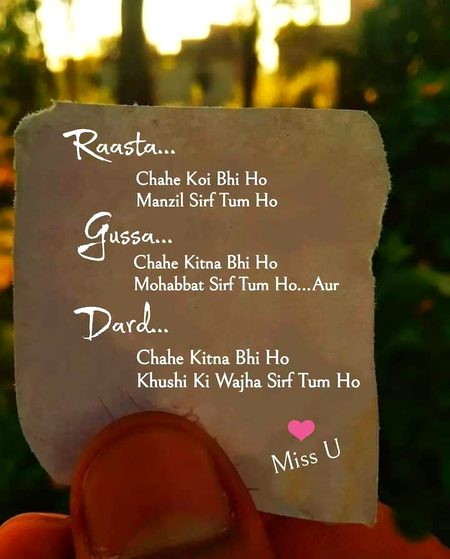 Raasta...
Chahe Koi Bhi Ho
Manzil Sirf Tum Ho
Gussa...
Chahe Kitna Bhi Ho
Mohabbat Sirf Tum Ho...Aur
Dard...
Chahe Kitna Bhi Ho
Khushi Ki Wajha Sirf Tum Ho
Miss U